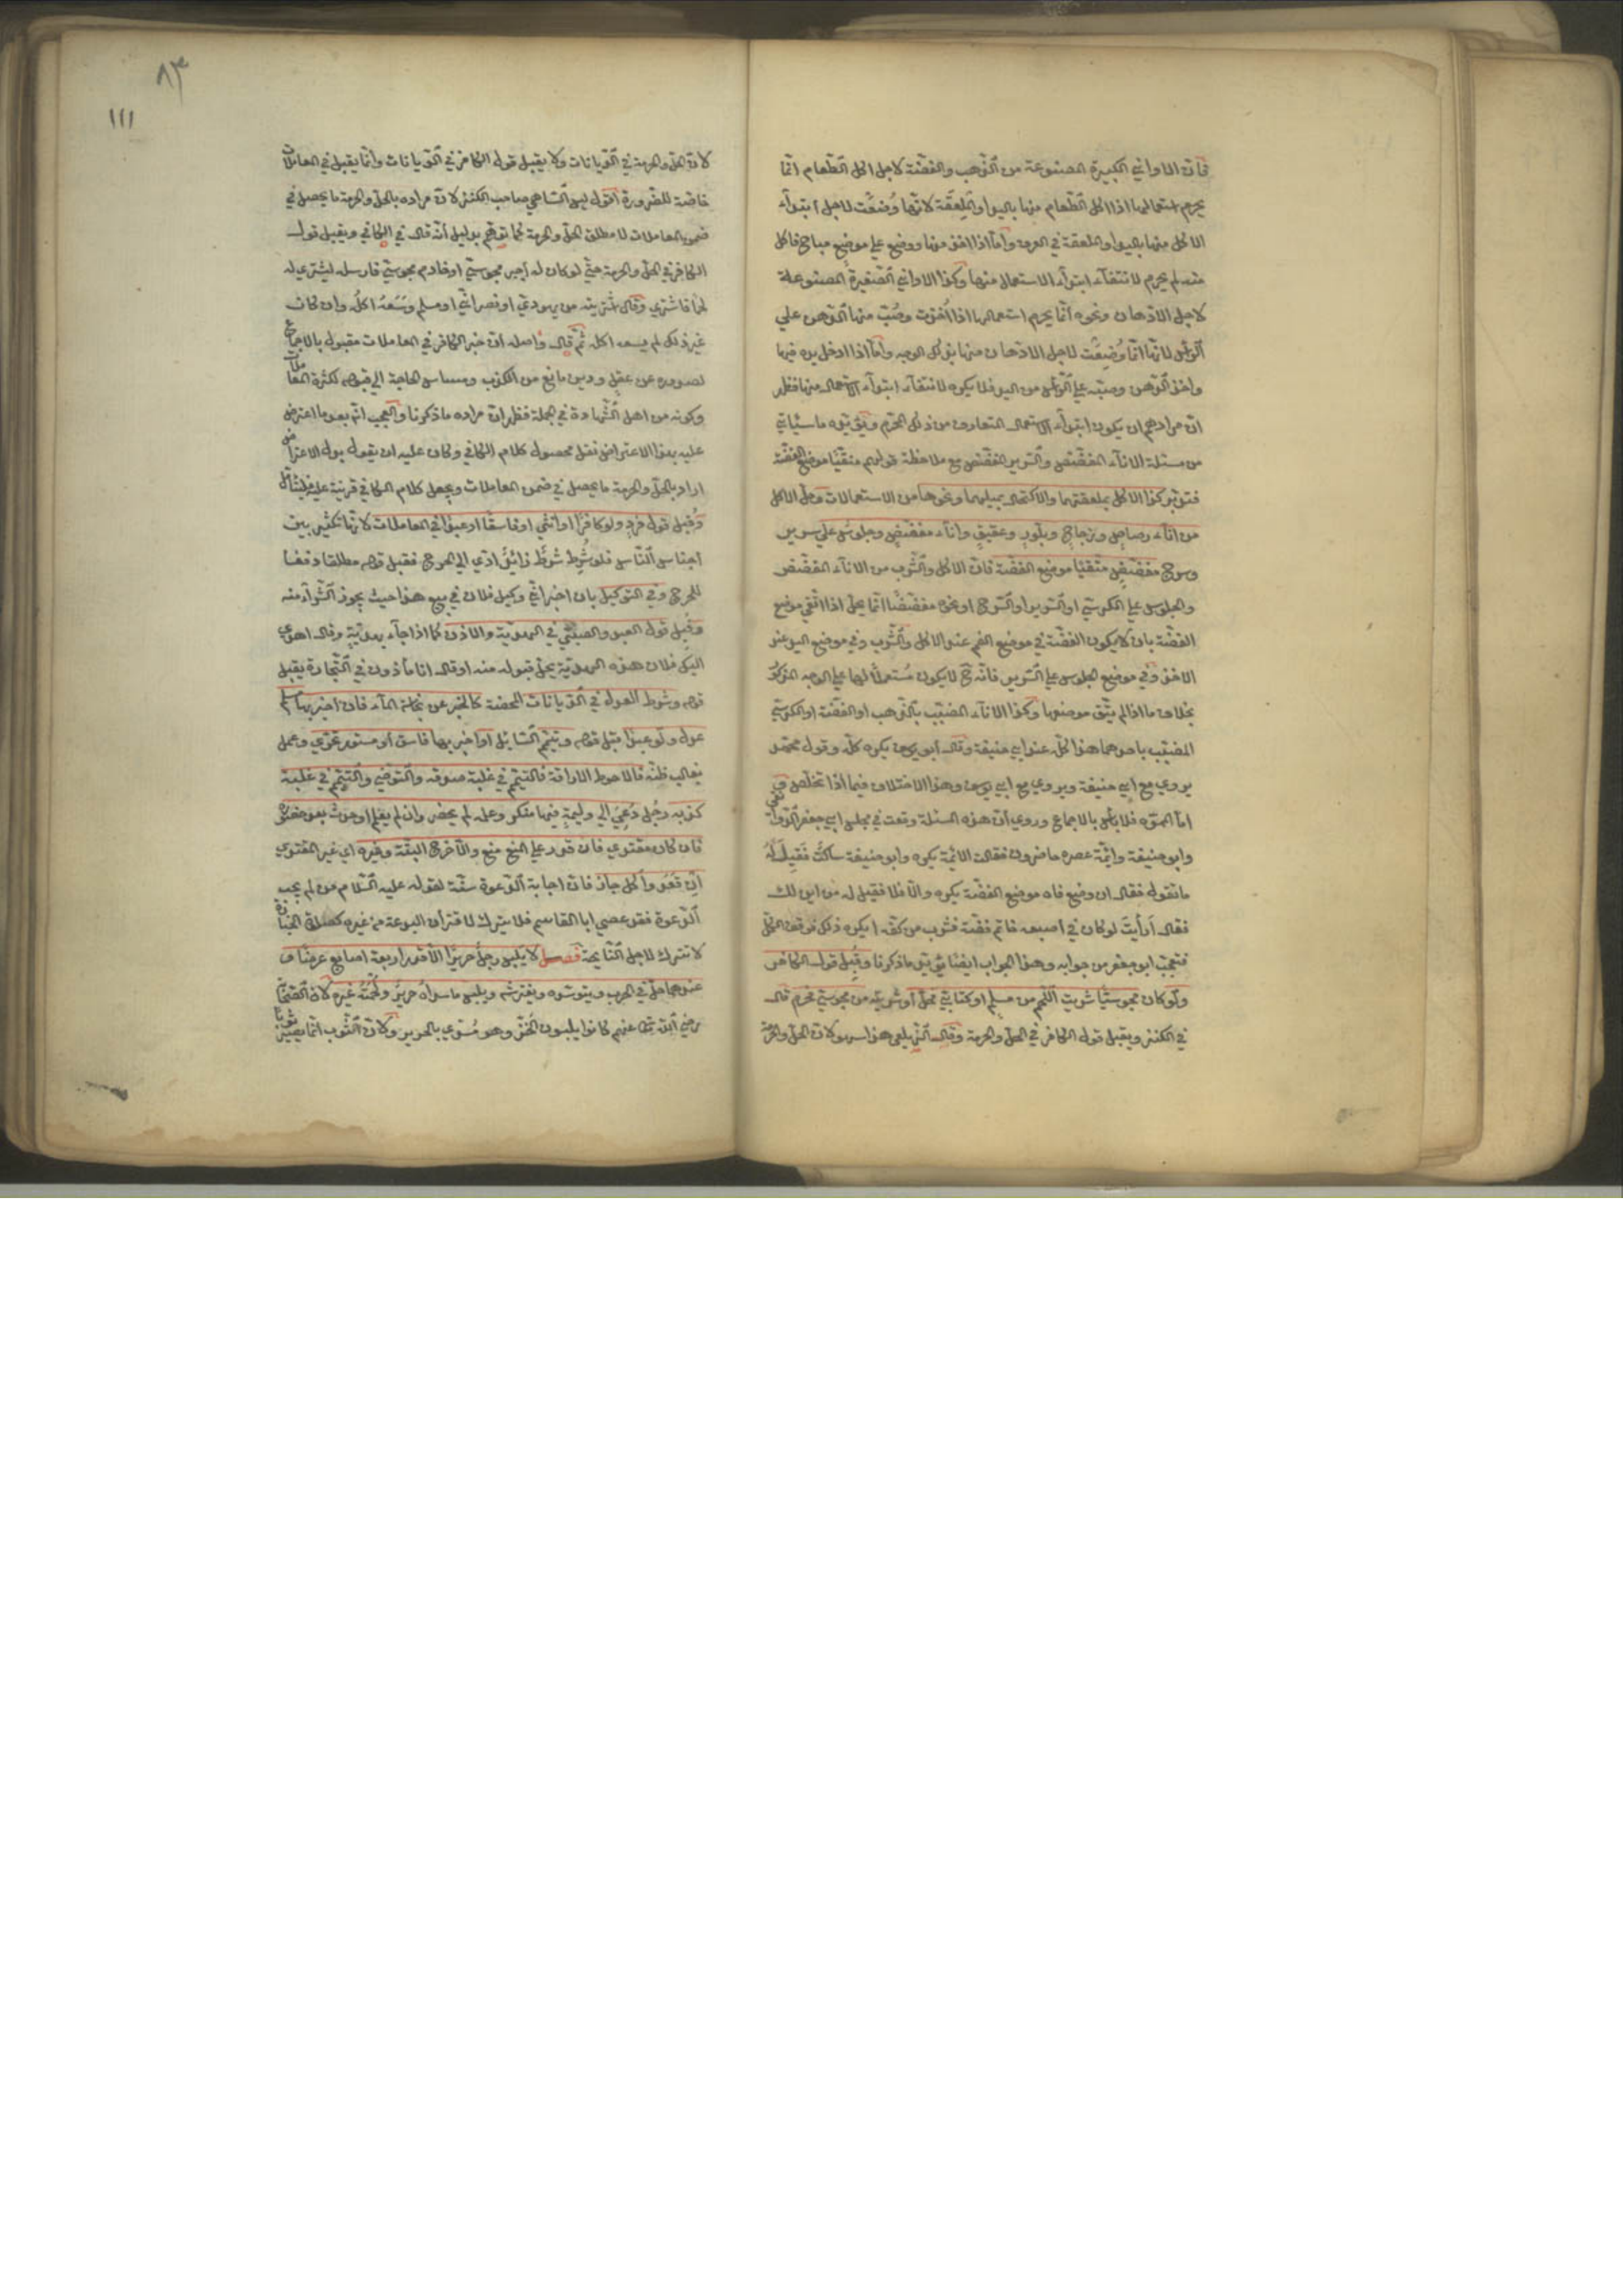 فان الاواني الكبيرة المصنوعة من الذهب والفضة لاجل اكل الطعام انما
يحرم استعمالها اذا اكل الطعام منها باليد او الملعقة لانها وُضعت لاجل ابتداء
الاكل منها باليد او الملعقة في العرف واما اذا اخذ منها ووضع على موضع مباح فاكل
منه لم يحرم لانتفاء ابتداء الاستعمال منها وكذا الاواني الصغيرة المصنوعة
لاجل الادهان ونحوه انما يحرم استعمالها اذا اُخذت وصُبّ منها الدهن علي
الرأس لانها انما وُضِعَت لاجل الادهان منها بذلك الوجه واما اذا ادخل يده فيها
واخذ الدهن وصبّه على الرأس من اليد فلا يكره لانتفاء ابتداء الاستعمال منها فظهر
ان مرادهم ان يكون ابتداء الاستعمال المتعارف من ذلك المحرم ويؤيده ما سيأتي
من مسئلة الاناء المفضض والسرير المفضض مع ملاحظة قولهم متقيا موضع الفضة
فتدبر كذا الاكل بملعقتهما والاكتحال بميلهما ونحوها من الاستعمالات وحل الاكل
من اناء رصاصٍ وزجاجٍ وبلّورٍ وعقيقٍ واناء مفضضٍ وجلوسٌ على سرير
وسرج مفضضٍ متقيًا موضع الفضة فان الاكل والشرب من الاناء المفضض
والجلوس على الكرسي او السرير او السرج او نحوه مفضضًا انما يحل اذا اتقي موضع
الفضة بان لا يكون الفضة في موضع الفم عند الاكل والشرب وفي موضع اليد عند
الاخذ وفي موضع الجلوس على السرير فانه ح لا يكون مُستعملًا لها على الوجه المذكور
بخلاف ما اذا لم يتق موضعها وكذا الاناء المضبب بالذهب او الفضة او الكرسي
المضبب باحدهما هذا كله عند ابي حنيفة وقال ابو يوسف يكره كله وقول محمد
يروي مع ابي حنيفة ويروي مع ابي يوسف وهذا الاختلاف فيما اذا تخلص
اما المموه فلا بأس بالاجماع وروي ان هذه المسئلة وقعت في مجلس ابي جعفر الدوانقي
وابو حنيفة وائمة عصره حاضرون فقالت الائمة يكره وابو حنيفة ساكتٌ فَقِيل لَهُ
ما تقول فقال ان وضع فاه موضع الفضة يكره والا فلا فقيل له من اين لك
فقال أرأيتَ لو كان في اصبعه خاتم فضة فشرب من كفه ايكره ذلك فوقف الكل
فتعجب ابو جعفر من جوابه وهذا الجواب ايضا يؤيد ما ذكرنا وقُبِل قول كافر
ولو كان مجوسيًا شريت اللحم من مسلمٍ او كتابيٍّ فحل او شريته من مجوسيّ فحرم قال
في الكنز ويقبل قول الكافر في الحل والحرمة وقال الزيلعي هذا سهو لان الحل والحرمة
٨٣
١١١
لان الحل والحرمة في الديانات ولا يقبل قول الكافر في الديانات وانما يقبل في المعاملات
خاصّة للضرورة اقول ليس الساهي صاحب الكنز لان مراده بالحل والحرمة ما يحصل في
ضمن المعاملات لا مطلق الحل والحرمة كما توهّم بدليل أنه قال في الكافي ويقبل قول
الكافر في الحل والحرمة حتي لو كان له أجير مجوسيّ او خادم مجوسيّ فارسله ليشتري له
لحما فاشتري وقال شتريته من يهودي او نصرانيّ او مسلم وَسِعَهُ اكلُه وان كان
غير ذلك لم يسعه اكله ثمّ قال واصله ان خبر الكافر في المعاملات مقبول بالاجماع
لصدوره عن عقل ودين مانع من الكذب ومساس الحاجة الى قبوله لكثرة المعاملات
وكونه من اهل الشهادة في الجملة فظهر ان مراده ما ذكرنا والعجب انه بعد ما اعترض
عليه بهذا الاعتراض نقل محصول كلام الكافي وكان عليه ان يقول بدل الاعتراض
اراد بالحل والحرمة ما يحصل في ضمن المعاملات ويجعل كلام الكافي قرينة عليه فليتأمل
وقُبِل قول فردٍ ولو كافرًا او انثي او فاسقًا او عبدًا في المعاملات لانها تكثير بين
اجناس الناس فلو شُرِط شرطٌ زائدٌ ادّي الى الحرج فقبل قوله مطلقا دفعا
للحرج وفي التوكيل بان اخبر انّي وكيل فلان في بيع هذا حيث يجوز الشراء منه
وقبِل قول العبد والصبيّ في الهدية والاذن كما اذا جاء بهديّةٍ وقال اهدي
اليك فلان هذه الهديّة يحل قبوله منه او قال انا مأذون في التجارة يقبل
قوله وشرط العدل في الديانات المحضة كالخبر عن نجاسة الماء فان اخبر بها مسلم
عدل ولو عبدًا قبل قوله ويتيمّم السّايل او اخبر بها فاسق أو مستور تحرّي وعمل
بغالب ظنّه فالاحوط الاراقة فالتيمّم في غلبة صدقه والتوضّي والتيمّم في غلبة
كذبه رجُل دُعِيَ الي وليمةٍ فيها منكر وعلمه لم يحضر وان لم يعلم او حدث بعد حضوره
فان كان مقتدي فان قدر على المنع منع والا خرج البتة وغيره اي غير المقتدي
ان قعد واكل جاز فان اجابة الدعوة سنّة لقوله عليه السّلام من لم يجب
الدعوة فقد عصي ابا القاسم فلا يترك لاقتران البدعة من غيره كصلوة الجنازة
لا تترك لاجل النّايحة فصــل لا يلبس رجلٌ حريرًا الا قدر اربعة اصابع عرضًا و
عندهما حل في الحرب ويتوسّده ويفترشه ويلبس ما سداه حريرٌ ولُحمتُه غيره لان الصّحابة
رضي الله تع عنهم كانوا يلبسون الخزّ وهو مُسَدّي بالحرير وكان الثّوب انما يصير ثوبا